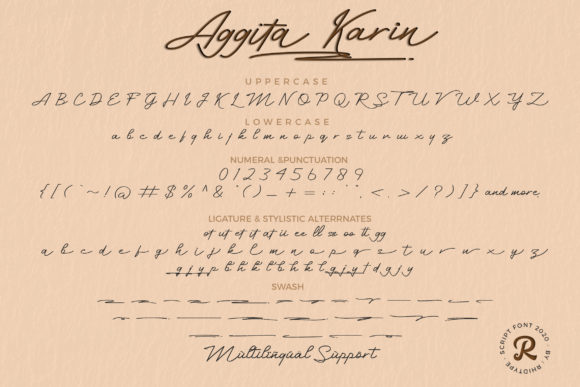 Aggita Karin
UPPERCASE
A B C D E F G H I J K L M N O P Q R S T U V W X Y Z
LOWERCASE
a b c d e f g h i j k l m n o p q r s t u r w x y z
NUMERAL &PUNCTUATION
0 1 2 3 4 5 6 7 8 9
{ [ ( ` ~ ! @ # $ % ^ & * ( ) _ + = : ; " ' , < . > / ? ) ] } and more
LIGATURE & STYLISTIC ALTERRNATES
ot ut et it at ii ee ll ss oo th gg
a b c d e f g h i j k l m n o p q r s t u v w x y z
SWASH
Multilingual Support
SCRIPT FONT 2020 · BY. RHIDTYPE ·
R